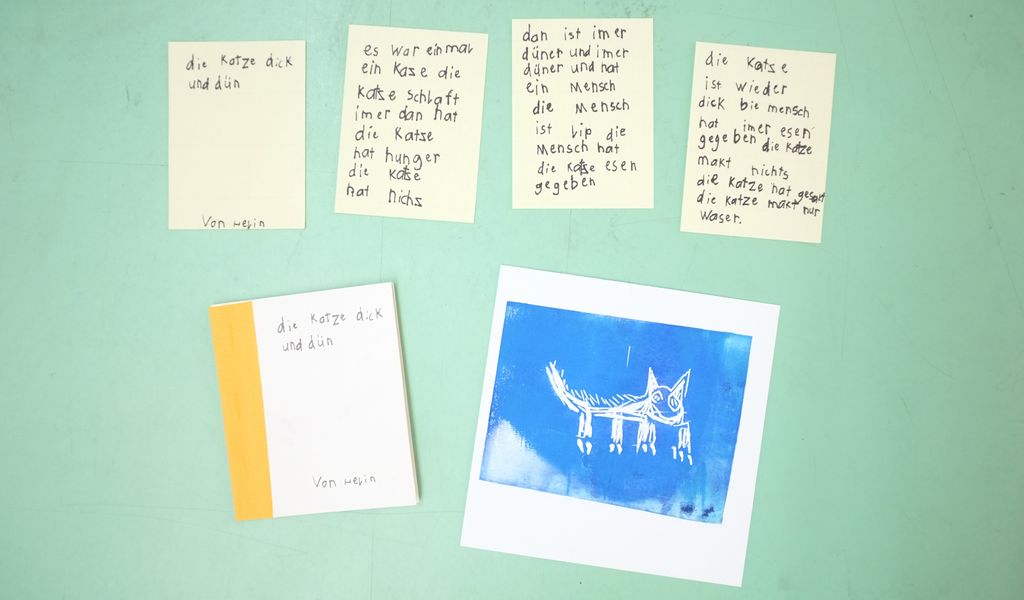 die Katze dick
und dün
Von Helin
es war einmal
ein Kaze die
Katze schlaft
imer dan hat
die Katze
hat hunger
die Katse
hat nichs
dan ist imer
düner und imer
düner und hat
ein Mensch
die Mensch
ist lip die
Mensch hat
die Katse esen
gegeben
die Katse
ist wieder
dick die mensch
hat imer esen
gegeben die Katze
makt nichts
die Katze hat gesagt
die Katze makt nur
Waser.
die Katze dick
und dün
Von Helin